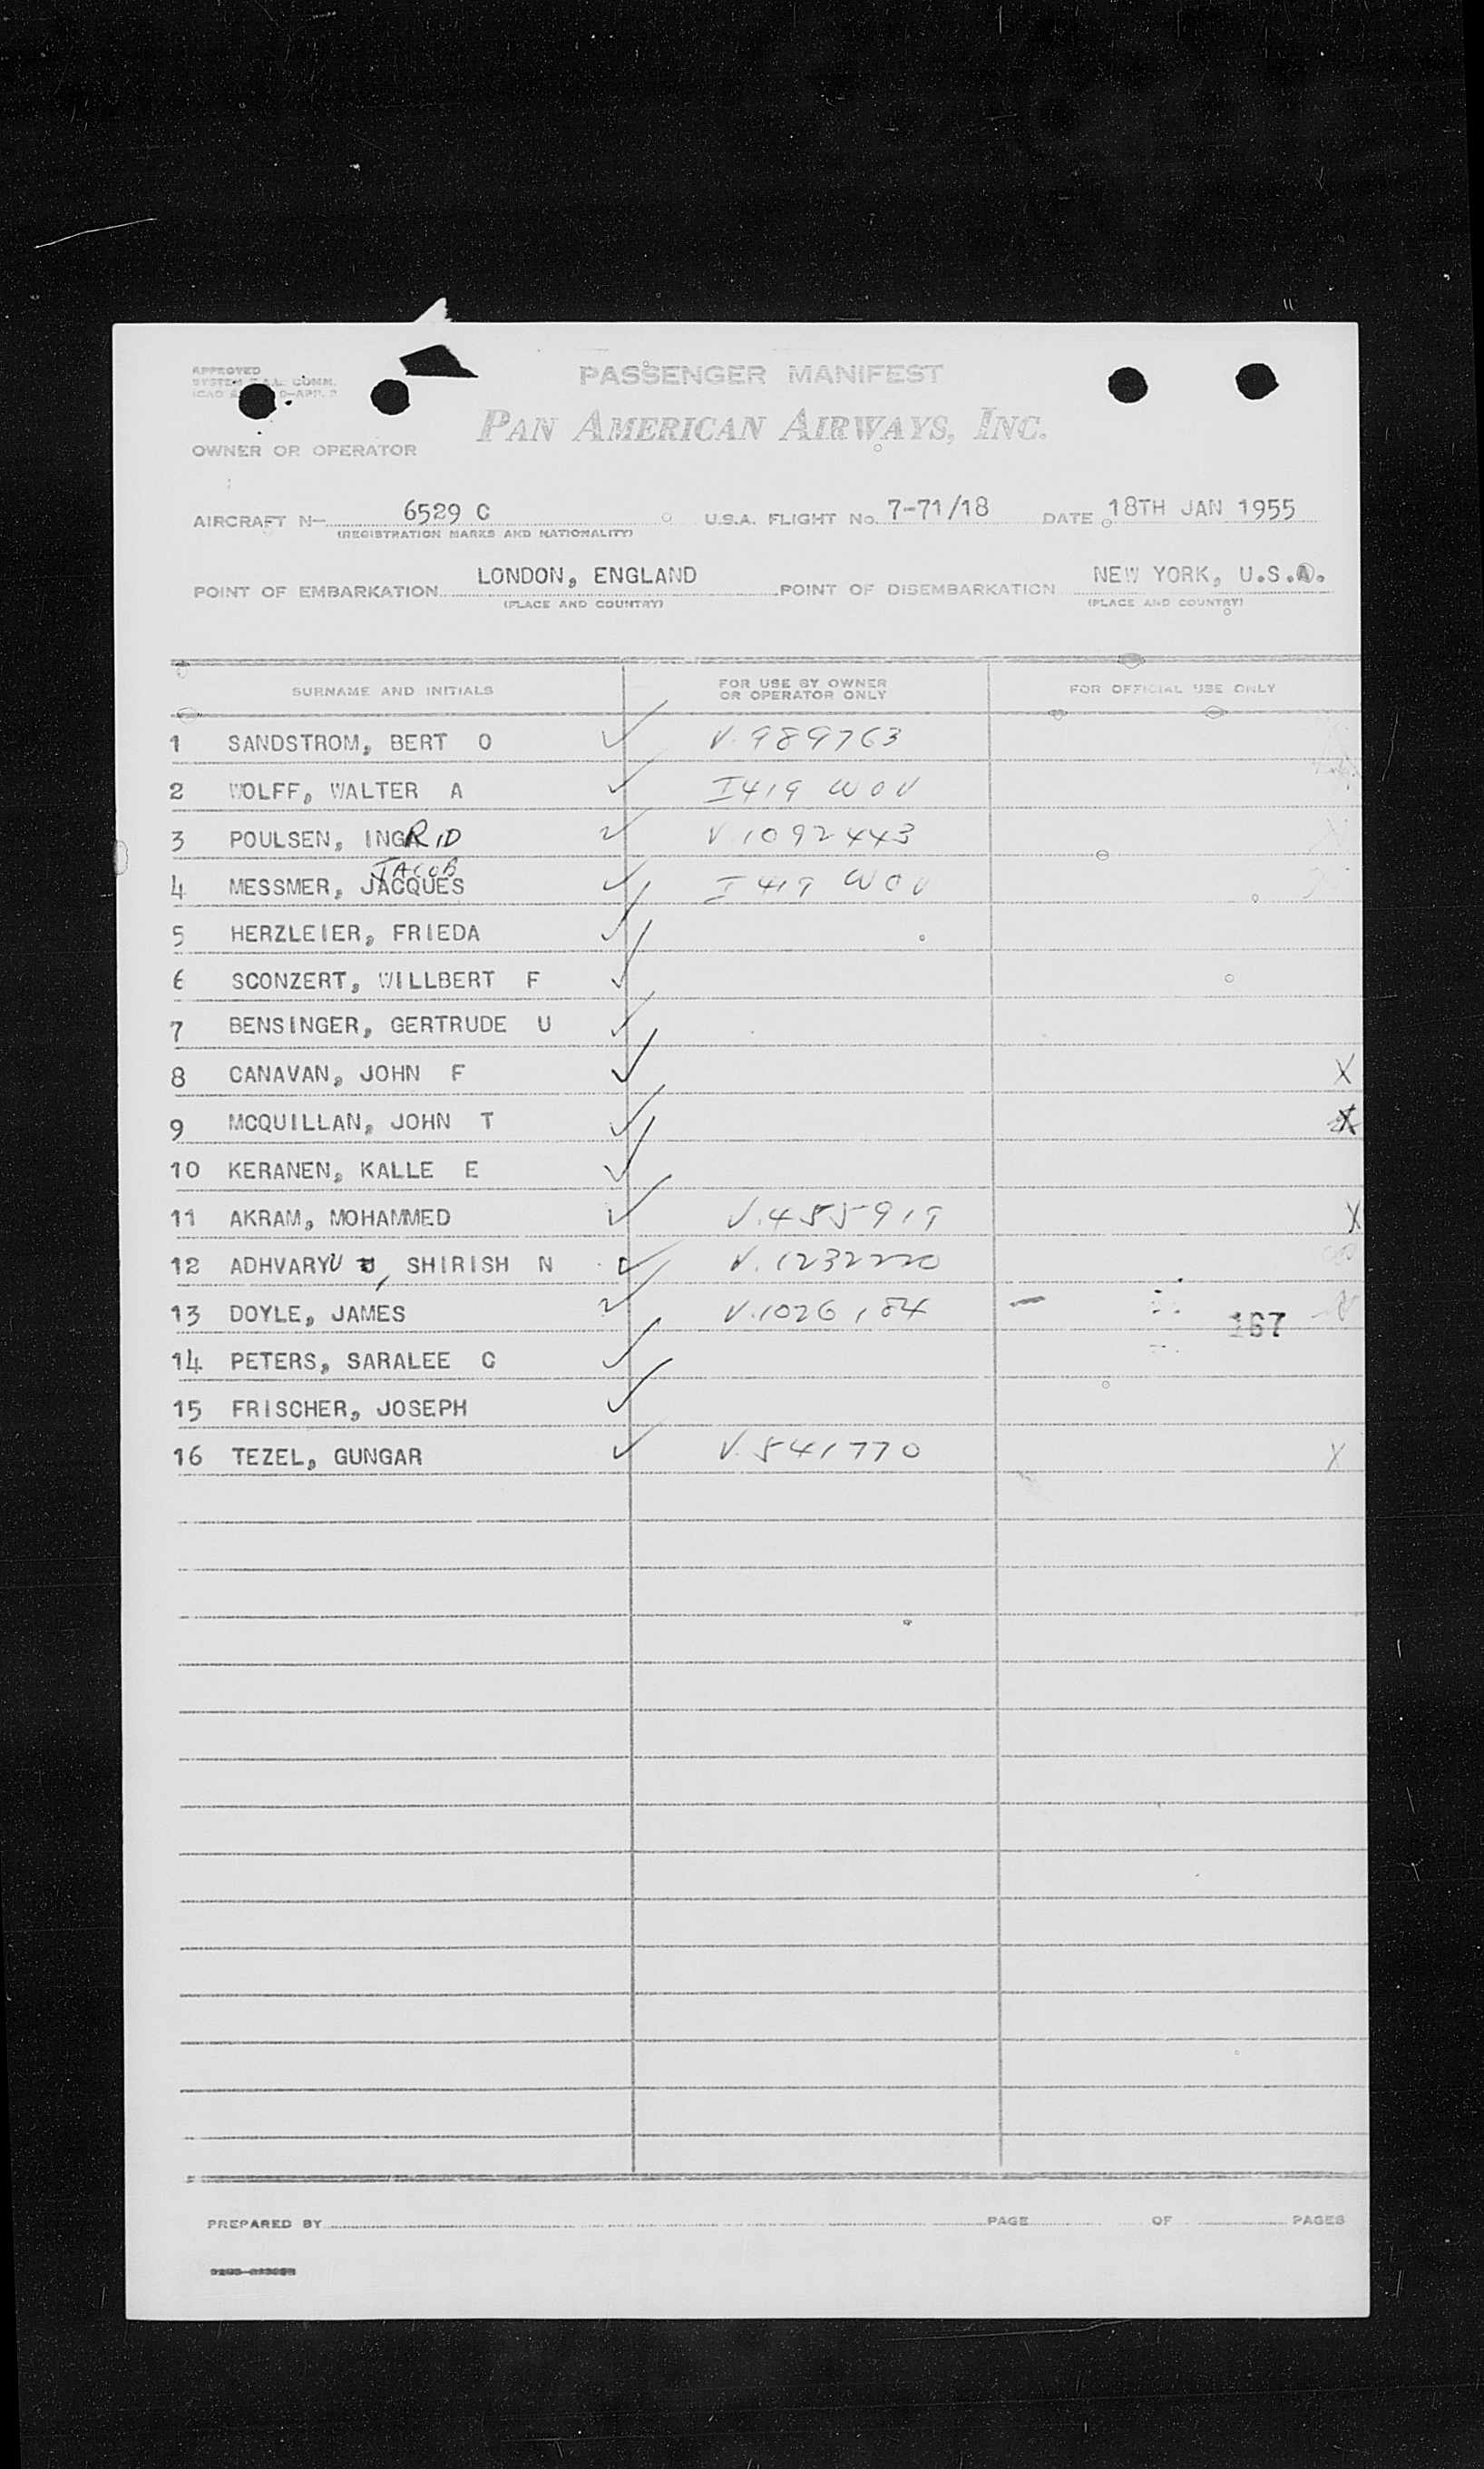 APPROVED
PASSENGER MANIFEST
PAN AMERICAN AIRWAYS, INC.
OWNER OR OPERATOR
AIRCRAFT N- 6529 C U.S.A. FLIGHT No. 7-71/18 DATE 18TH JAN 1955
(REGISTRATION MARKS AND NATIONALITY)
POINT OF EMBARKATION LONDON, ENGLAND POINT OF DISEMBARKATION NEW YORK, U.S.A.
(PLACE AND COUNTRY) (PLACE AND COUNTRY)
SURNAME AND INITIALS FOR USE BY OWNER OR OPERATOR ONLY FOR OFFICIAL USE ONLY
1 SANDSTROM, BERT O V.989763
2 WOLFF, WALTER A I419 WOV
3 POULSEN, INGRID V.1092443
JACOB
4 MESSMER, JACQUES I419 WOV
5 HERZLEIER, FRIEDA
6 SCONZERT, WILLBERT F
7 BENSINGER, GERTRUDE U
8 CANAVAN, JOHN F X
9 MCQUILLAN, JOHN T X
10 KERANEN, KALLE E
11 AKRAM, MOHAMMED V.455919 X
12 ADHVARYU, SHIRISH N V.1232220
13 DOYLE, JAMES V.1026184
167
14 PETERS, SARALEE C
15 FRISCHER, JOSEPH
16 TEZEL, GUNGAR V.541770 X
PREPARED BY PAGE OF PAGES